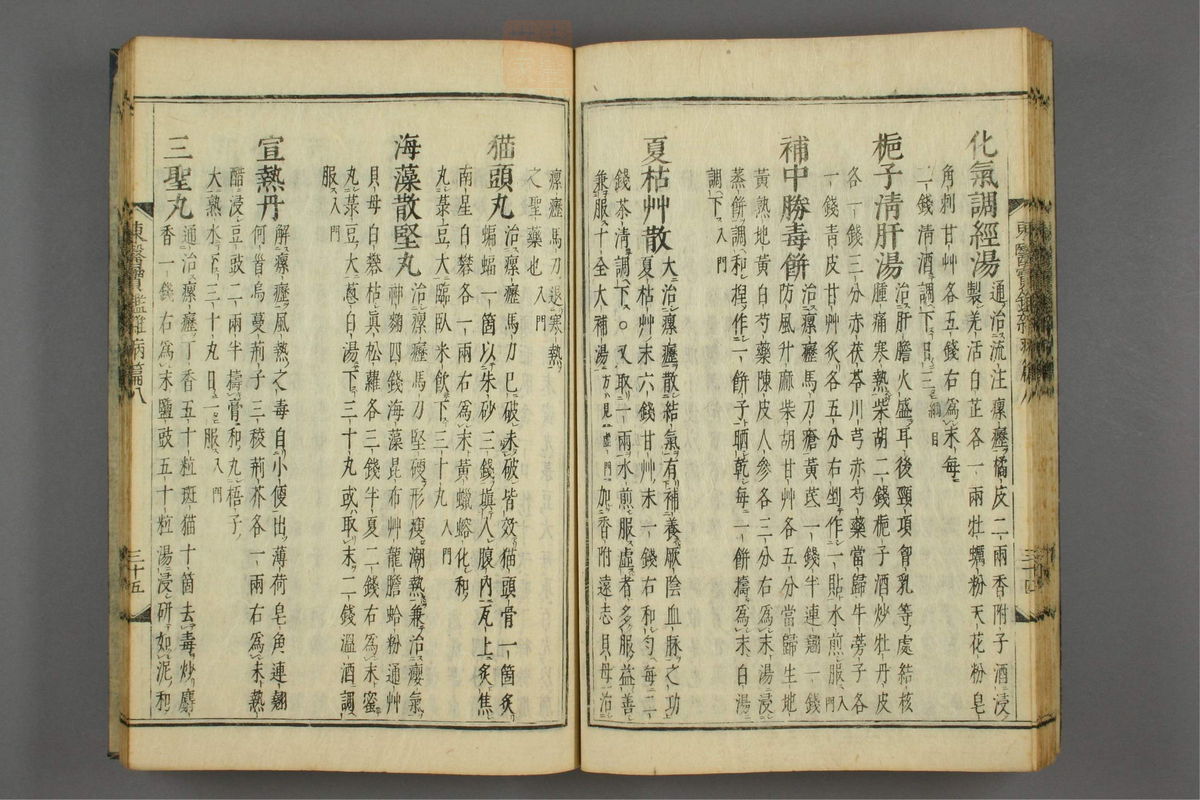 化氣調經湯 通治流注瘰癧橘皮二兩香附子酒浸
製羌活白芷各一兩牡蠣粉天花粉皂
角刺甘艸各五錢右爲末每
二錢清酒調下日三綱目
梔子清肝湯 治肝膽火盛耳後頸項胷乳等處結核
腫痛寒熱柴胡二錢梔子酒炒牡丹皮
各一錢三分赤茯苓川芎赤芍藥當歸牛蒡子各
一錢青皮甘艸炙各五分右剉作一貼水煎服入門
補中勝毒餅 治瘰癧馬刀瘡黃芪一錢半連翹一錢
防風升麻柴胡甘艸各五分當歸生地
黃熟地黃白芍藥陳皮人參各三分右爲末湯浸
蒸餅調和捏作一餅子晒乾每一餅擣爲末白湯
調下入門
夏枯艸散 大治瘰癧散結氣有補養厥陰血脉之功
夏枯艸末六錢甘艸末一錢右和勻每二
錢茶清調下○又取一兩水煎服虛者多服益善
兼服十全大補湯方見虛門加香附遠志貝母治
瘰癧馬刀退寒熱
之聖藥也入門
猫頭丸 治瘰癧馬刀已破未破皆效猫頭骨一箇炙
蝙蝠一箇以朱砂三錢塡入腹內瓦上炙焦
南星白礬各一兩右爲末黃蠟熔化和
丸菉豆大臨臥米飲下三十丸入門
海藻散堅丸 治瘰癧馬刀堅硬形瘦潮熱兼治癭氣
神麴四錢海藻昆布艸龍膽蛤粉通艸
貝母白礬枯眞松蘿各三錢半夏二錢右爲末蜜
丸菉豆大葱白湯下三十丸或取末二錢溫酒調
服入門
宣熱丹 解瘰癧風熱之毒自小便出薄荷皂角連翹
何首烏蔓荊子三稜荊芥各一兩右爲末熱
醋浸豆豉二兩半擣膏和丸梧子
大熟水下三十丸日一服入門
三聖丸 通治瘰癧丁香五十粒斑猫十箇去毒炒麝
香一錢右爲末鹽豉五十粒湯浸研如泥和
東醫寶鑑雜病篇八
三十五